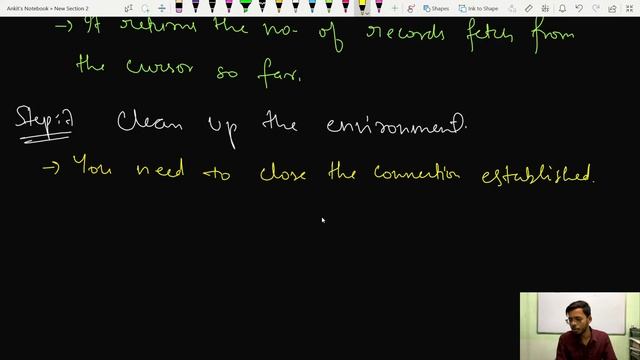 Ankit's Notebook » New Section 2
Shapes
Ink to Shape
→ It returns the no. of records fetch from
the cursor so far.
Step:7 Clean up the environment.
→ You need to close the connection established.